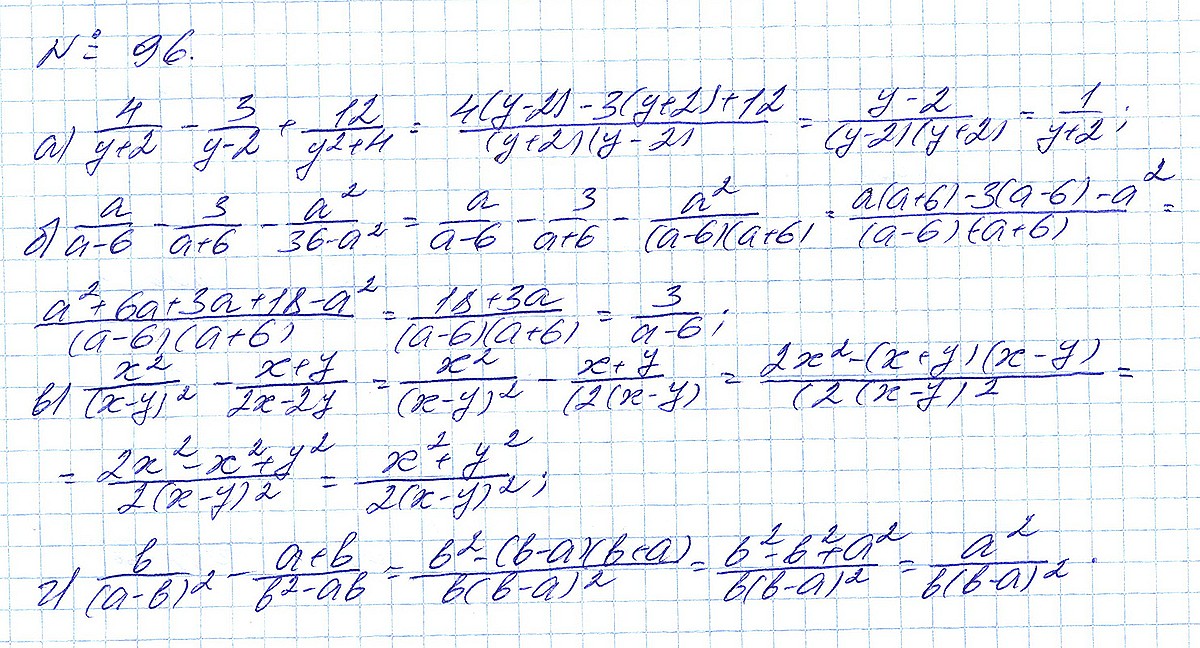 № 96.
а) 4/(y+2) - 3/(y-2) + 12/(y²+4) = (4(y-2)-3(y+2)+12)/((y+2)(y-2)) = (y-2)/((y-2)(y+2)) = 1/(y+2);
б) a/(a-6) - 3/(a+6) - a²/(36-a²) = a/(a-6) - 3/(a+6) - a²/((a-6)(a+6)) = (a(a+6)-3(a-6)-a²)/((a-6)(a+6)) =
(a²+6a+3a+18-a²)/((a-6)(a+6)) = (18+3a)/((a-6)(a+6)) = 3/(a-6);
в) x²/(x-y)² - (x+y)/(2x-2y) = x²/(x-y)² - (x+y)/(2(x-y) = (2x²-(x+y)(x-y))/(2(x-y)² =
= (2x²-x²+y²)/(2(x-y)²) = (x²+y²)/(2(x-y)²);
г) b/(a-b)² - (a+b)/(b²-ab) = (b²-(b-a)(b+a))/(b(b-a)²) = (b²-b²+a²)/(b(b-a)²) = a²/(b(b-a)²).